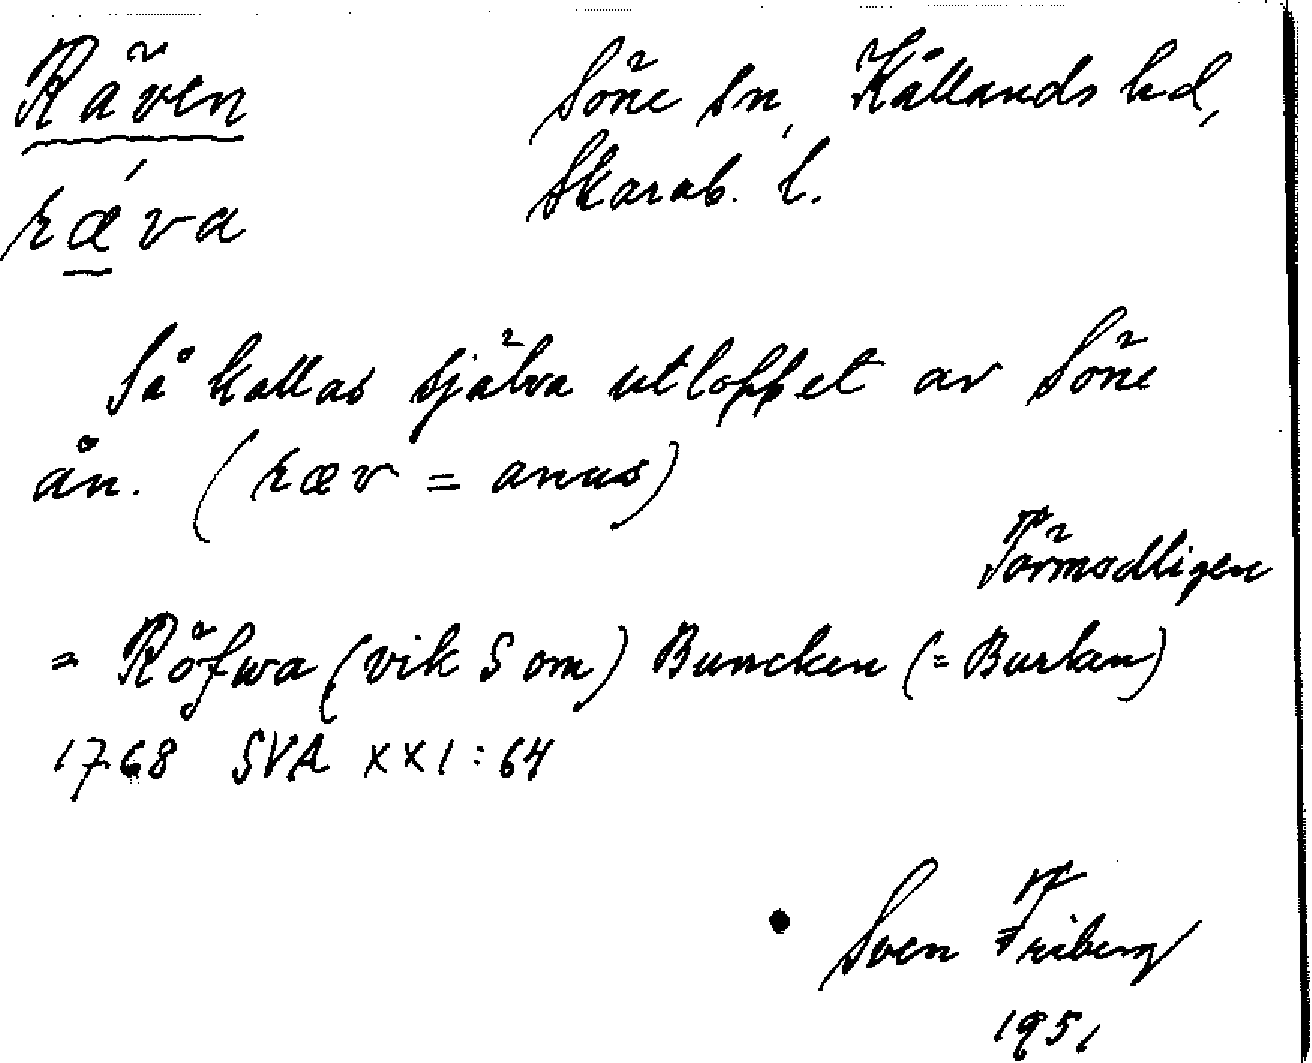 Räven Söne sn, Kållands hd,
Skarab. l.
ræ´va
Så kallas själva utloppet av Söne
ån. (ræv = anus)
Förmodligen
= Röfwa (vik S om) Buncken (= Burken)
1768 SVA XXI:64
Sven Friberg
1951